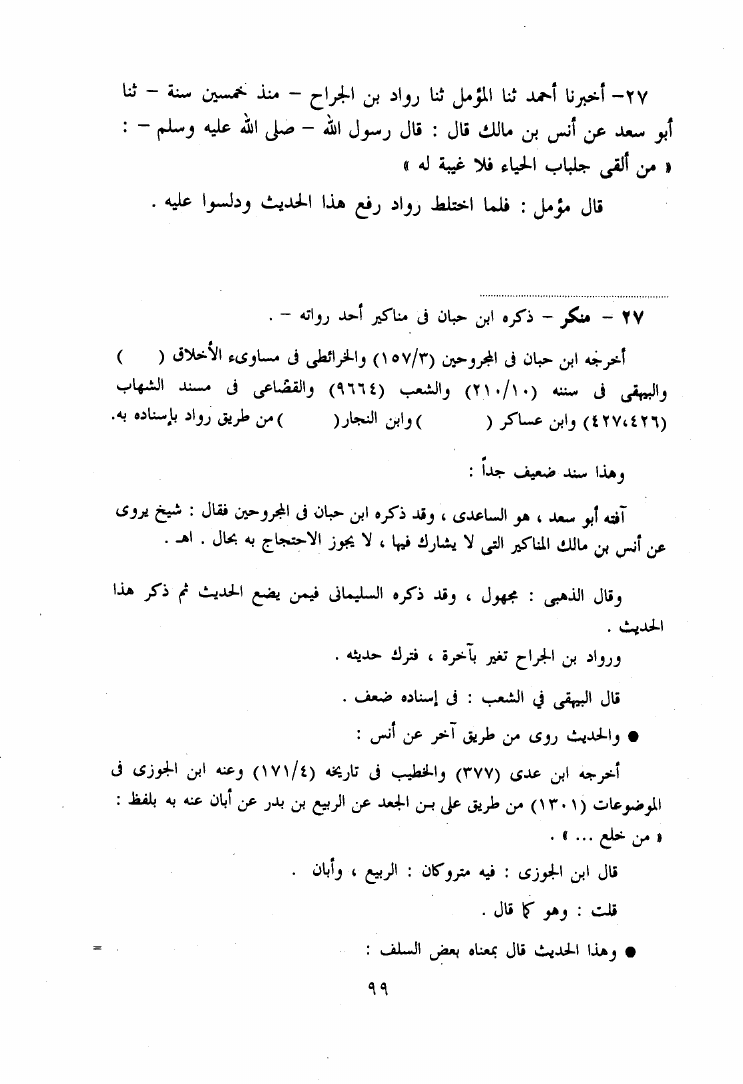 ٢٧- أخبرنا أحمد ثنا المؤمل ثنا رواد بن الجراح - منذ خمسين سنة - ثنا
أبو سعد عن أنس بن مالك قال : قال رسول الله - صلى الله عليه وسلم - :
« من ألقى جلباب الحياء فلا غيبة له »
قال مؤمل : فلما اختلط رواد رفع هذا الحديث ودلسوا عليه .
٢٧ - منكر - ذكره ابن حبان فى مناكير أحد رواته - .
أخرجه ابن حبان فى المجروحين (١٥٧/٣) والخرائطى فى مساوىء الأخلاق ( )
والبيهقى فى سننه (٢١٠/١٠) والشعب (٩٦٦٤) والقضاعى فى مسند الشهاب
(٤٢٧،٤٢٦) وابن عساكر ( ) وابن النجار ( ) من طريق رواد بإسناده به.
وهذا سند ضعيف جداً :
آفته أبو سعد ، هو الساعدى ، وقد ذكره ابن حبان فى المجروحين فقال : شيخ يروى
عن أنس بن مالك المناكير التى لا يشارك فيها ، لا يجوز الاحتجاج به بحال . اهـ .
وقال الذهبى : مجهول ، وقد ذكره السليمانى فيمن يضع الحديث ثم ذكر هذا
الحديث .
ورواد بن الجراح تغير بآخرة ، فترك حديثه .
قال البيهقى في الشعب : فى إسناده ضعف .
● والحديث روى من طريق آخر عن أنس :
أخرجه ابن عدى (٣٧٧) والخطيب فى تاريخه (١٧١/٤) وعنه ابن الجوزى فى
الموضوعات (١٣٠١) من طريق على بـن الجعد عن الربيع بن بدر عن أبان عنه به بلفظ :
« من خلع ... » .
قال ابن الجوزى : فيه متروكان : الربيع ، وأبان .
قلت : وهو كما قال .
● وهذا الحديث قال بمعناه بعض السلف : =
٩٩